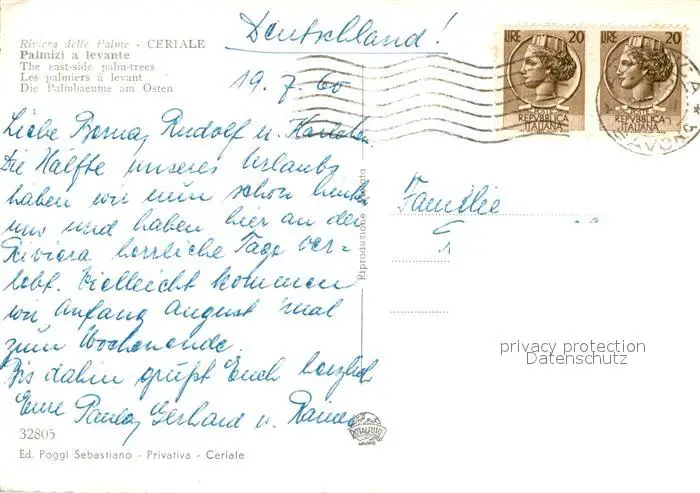 Deutschland!
Riviera delle Palme - CERIALE
Palmizi a levante
The east-side palm-trees
Les palmiers à levant
Die Palmbaeume am Osten
19.7.60
LIRE 20
LIRE 20
POSTE
REPVBBLICA
ITALIANA
REPVBBLICA
ITALIANA
SAVONA
Liebe Rudolf u.
Die Hälfte unseres Urlaubs
haben wir nun schon hinter
uns und haben hier an der
Riviera herrliche Tage ver-
lebt. Vielleicht kommen
wir Anfang August 'mal
zum Wochenende.
Bis dahin grüßt Euch herzlich
Eure Paula, Gerhard u. Rainer
Familie
Riproduzione vietata
privacy protection
Datenschutz
32805
ROTALFOTO
Ed. Poggi Sebastiano - Privativa - Ceriale